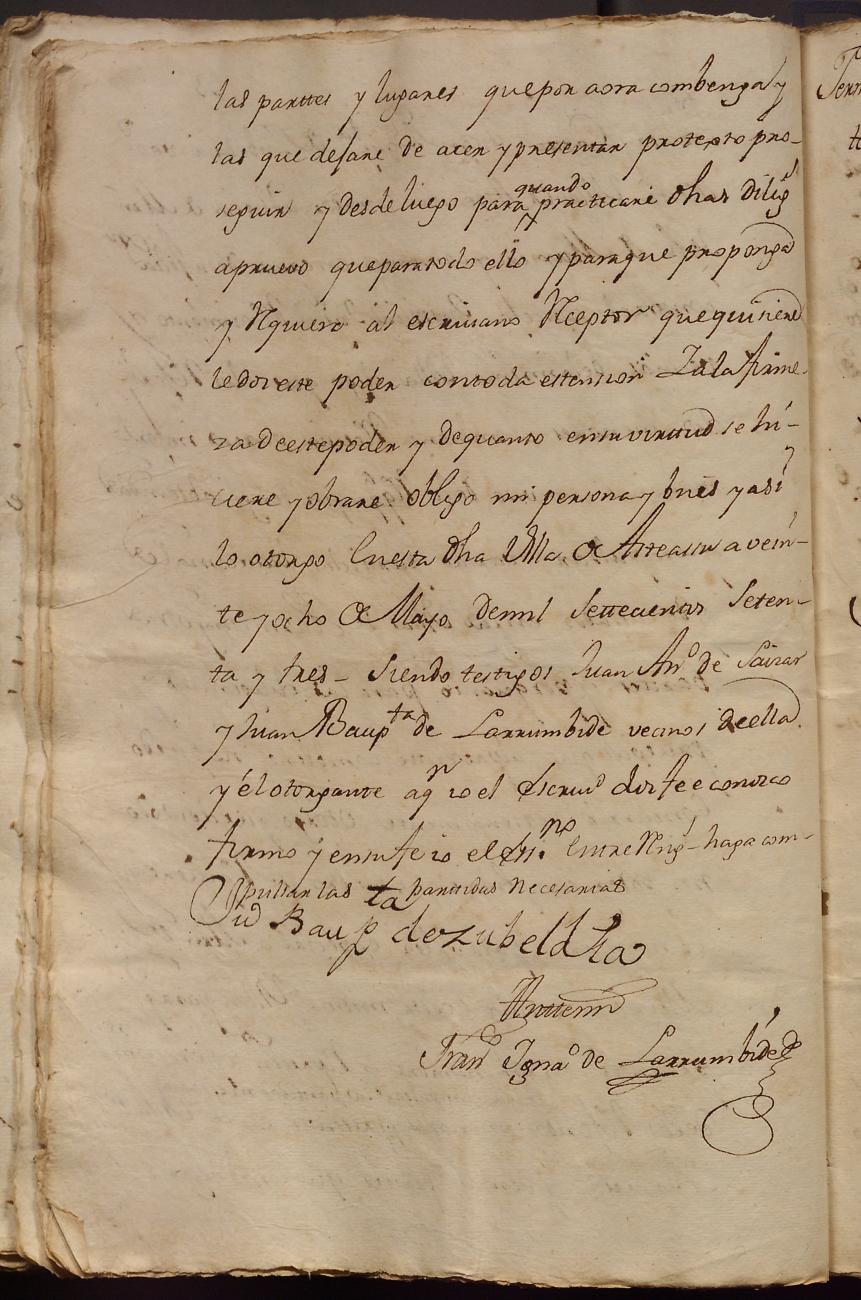 las parttes y lugares que por aora combenga y
las que dejare de acer y presentar protexto pro-
seguir y desde luego para quando practicare dhas dilig.s
apruevo que para todo ello y para que proponga
y Rquiera al escrivano Rceptor que quisiere
le doi este poder con toda estension Y a la firme-
za de este poder y de quanto en su virttud se hi-
ciere y obrare obligo mi persona y bnes y asi
lo otorgo En esta dha Villa de Asteasu a vein-
te y ocho de Mayo de mil settecientos seten-
ta y tres - siendo testigos Juan Anº de Saizar
y Juan Baupta de Larrumbide vecinos de ella
y el otorgante a qn io el Escrivº doi fee conozco
firmo y en su fe io el Essno Entre Rng.s - haga com-
pulsar las parttidas necesarias
Jud Baupta de zubeldia
Antte mi
Franº Ignaº de Larrumbide
Tern